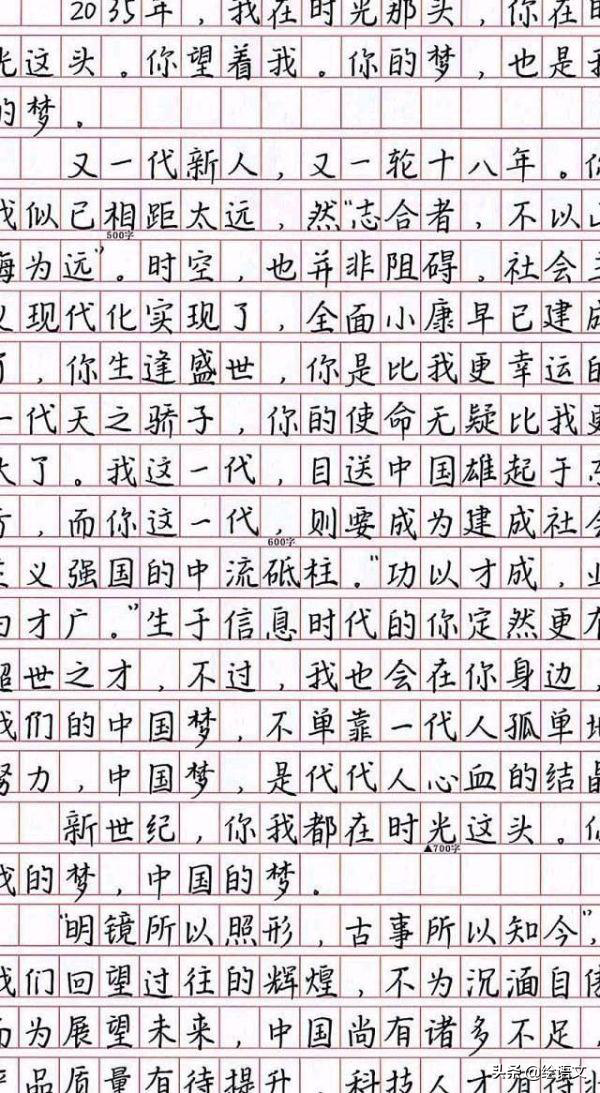 2035年，我在时光那头，你在时
光这头。你望着我。你的梦，也是我
的梦。
又一代新人，又一轮十八年。你
我似已相距太远，然"志合者，不以山
500字
海为远"。时空，也并非阻碍。社会主
义现代化实现了，全面小康早已建成
了，你生逢盛世，你是比我更幸运的
一代天之骄子，你的使命无疑比我更
大了。我这一代，目送中国雄起于东
方，而你这一代，则要成为建成社会
600字
主义强国的中流砥柱。"功以才成，业
由才广。"生于信息时代的你定然更有
超世之才，不过，我也会在你身边，
我们的中国梦，不单靠一代人孤单地
努力，中国梦，是代代人心血的结晶
新世纪，你我都在时光这头。你
▲700字
我的梦，中国的梦。
"明镜所以照形，古事所以知今"，
我们回望过往的辉煌，不为沉湎自傲
而为展望未来，中国尚有诸多不足，
产品质量有待提升，科技人才有待壮
头条@绘语文